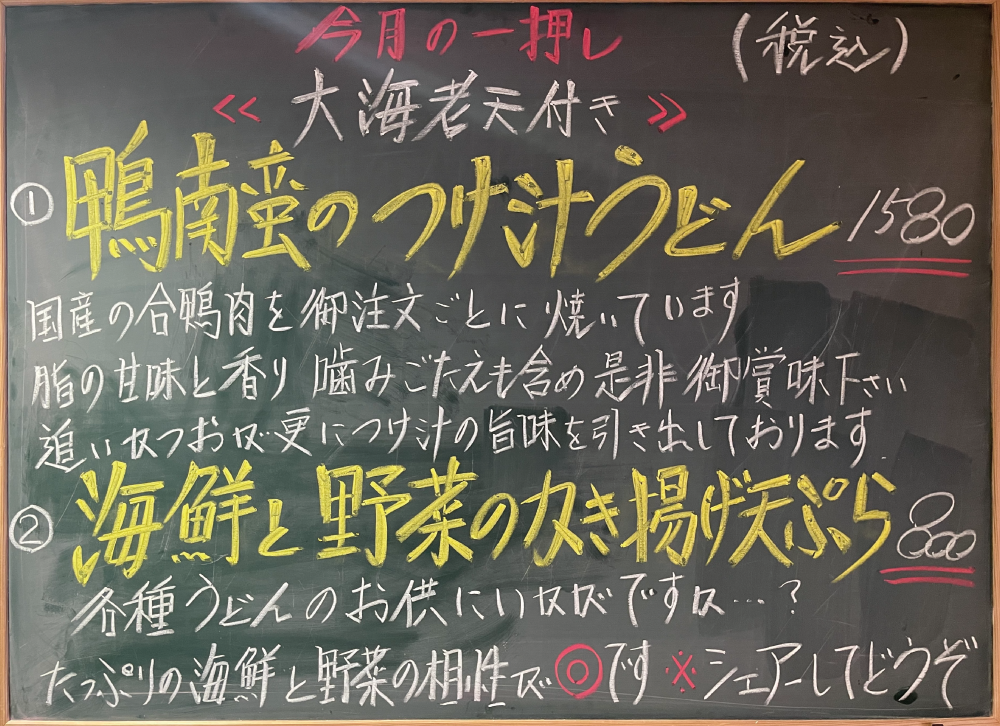 今月の一押し (税込)
≪ 大海老天付き ≫
① 鴨南蛮のつけ汁うどん 1580
国産の合鴨肉を御注文ごとに焼いています
脂の甘味と香り 噛みごたえも含め是非御賞味下さい
追いかつおが更につけ汁の旨味を引き出しております
② 海鮮と野菜のかき揚げ天ぷら 800
各種うどんのお供にいかがですか…?
たっぷりの海鮮と野菜の相性が◎です ※シェアーしてどうぞ